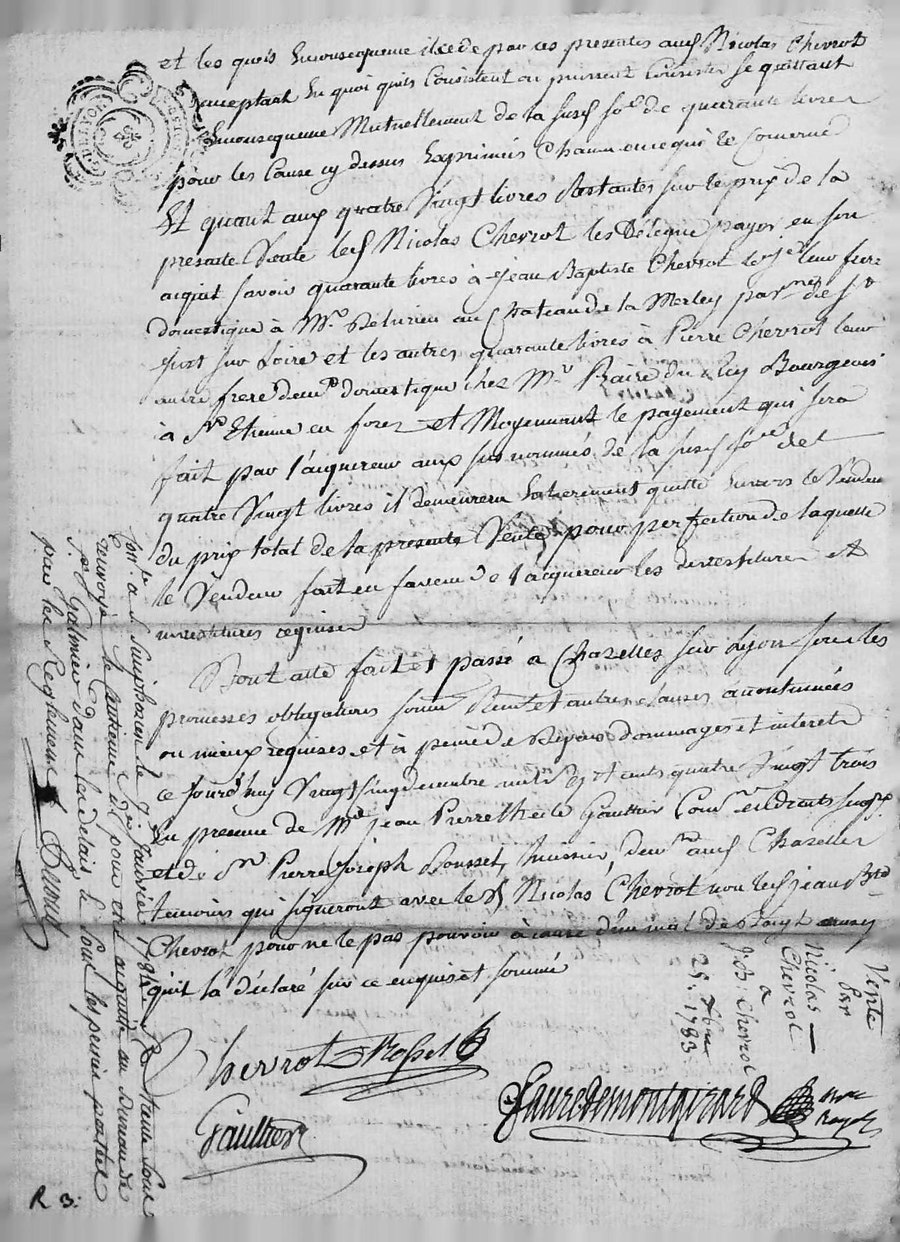 et les quels Enconsequence il cede par ces presentes aud Nicolas Chevrot
acceptant En quoi quils Consistent ou puissent Consister se quittant
Enconsequence Mutuellement de la susd so.e de quarante livres
pour les Cause cy dessus Exprimés Chacun en ce qui le Concerne
Et quant aux quatre Vingt livres Restantes sur le prix de la
presente Vente led Nicolas Chevrot les Délégue payer en son
aiquit savoir quarante livres à Jean Baptiste Chevrot leur frere
domestique à Mr. au Chateau de la Merley par de St
just sur Loire et les autres quarante livres à Pierre Chevrot leur
autre frere dem.t domestique chez Mr. Baire du Bourgeois
à St Etienne en forez et Moyennant le payement qui sera
fait par l'aiquereur aux sus nommés de la susd so.e de
quatre Vingt livres il demeurera Entierement quitte Envers le Vendeur
du prix total de la presente Vente pour perfection de laquelle
le Vendeur fait en faveur de l'acquereur les devestitures et
investitures requises
Dont acte fait et passé à Chazelles sur Lyon sous les
promesses obligations soum. Renon. et autres clauses accoutumées
ou mieux requises et à peine de Depens dommages et interets
ce jourd'huy Vingt cinq decembre mil sept cents quatre Vingt trois
En presence de Me jean Pierre Gaulthier en droits
et de Sr. Pierre Joseph Pousset, huissier, dem.t aud Chazelles
temoins qui signeront avec le d Nicolas Chevrot non led jean Bte
Chevrot pour ne le pas pouvoir à cause d'un mal de doigt
qu'il la déclaré sur ce enquis et sommé
Chevrot
Gaulthier
Fauredemontgirard
not.
Royal
Vente
par
Nicolas
Chevrot
a
J. B. Chevrot
25. Xbre
1783
Con.le a S. Simphorien le 7. janvier 1784. Retenu sous
renvoyé le pour etre acquitté au Bureau de
St. Galmier dans les delais & sous les peines portées
par les Reglemens
R 3.